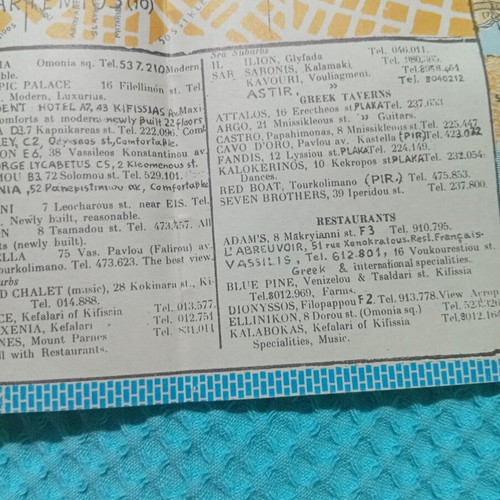 ARTEMIS (16)
Omonia sq. Tel. 537.210 Modern
PIC PALACE 16 Filellinon st. Tel.
Modern, Luxurius.
DENT HOTEL A7, 43 KIFISSIAS Av. Maxi-
comforts at modern newly built 22 floors
D3.7 Kapnikareas st. Tel. 222.096. Comb.
EY, C2, Odysseos st, Comfortable.
ON E6, 38 Vassileos Konstantinou av.
ORGE LYCABETUS C5, 2 Kleomenous st.
MOU B3 72 Solomou st. Tel. 529.101.
NIA, 52 Panepistimiou av, Comfortable
NI 7 Leocharous st. near EIS. Tel.
Newly built, reasonable.
ON 8 Tsamadou st. Tel. 473.457. All
ts (newly built).
ELLA 75 Vas. Pavlou (Falirou) av.
Tourkolimano. Tel. 473.623. The best view.
urbs
D CHALET (music), 28 Kokinara st., Ki-
Tel. 014.888.
CE, Kefalari of Kifissia Tel. 013.577.
XENIA, Kefalari Tel. 012.751
NES, Mount Parnes Tel. 831.011
ll with Restaurants.
Sea Suburbs
IL ILION, Glyfada Tel. 046.011.
SAR SARONIS, Kalamaki Tel.
KAVOURI, Vouliagmeni. Tel. 8958.461
ASTIR, " Tel. 8040212
GREEK TAVERNS
ATTALOS, 16 Erectheos st PLAKA Tel. 237.653
ARGO, 21 Mnisikleous st. " Guitars.
CASTRO, Papahimonas, 8 Mnissikleous st Tel. 225.447
CAVO D'ORO, Pavlou av. Kastella (PIR) Tel. 423.022
FANDIS, 12 Lyssiou st. PLAKA Tel. 224.149.
KALOKERINOS, 10 Kekropos st PLAKA Tel. 232.054-
Dances.
RED BOAT, Tourkolimano (PIR.) Tel. 475.853.
SEVEN BROTHERS, 39 Iperidou st. Tel. 237.800.
RESTAURANTS
ADAM'S, 8 Makryianni st. F3 Tel. 910.795.
L'ABREUVOIR, 51 rue Xenokratous. Rest. Français.
VASSILIS, Tel. 612.801, 16 Voukourestiou st.
Greek & international specialities.
BLUE PINE, Venizelou & Tsaldari st. Kifissia
Tel. 8012.969, Farms.
DIONYSSOS, Filopappou F2. Tel. 913.778. View Acrop
ELLINIKON, 8 Dorou st. (Omonia sq.) Tel.
KALABOKAS, Kefalari of Kifissia Tel. 8012.16
Specialities, Music.